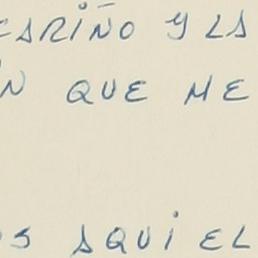 CARIÑO Y LA
N QUE ME
OS AQUI EL